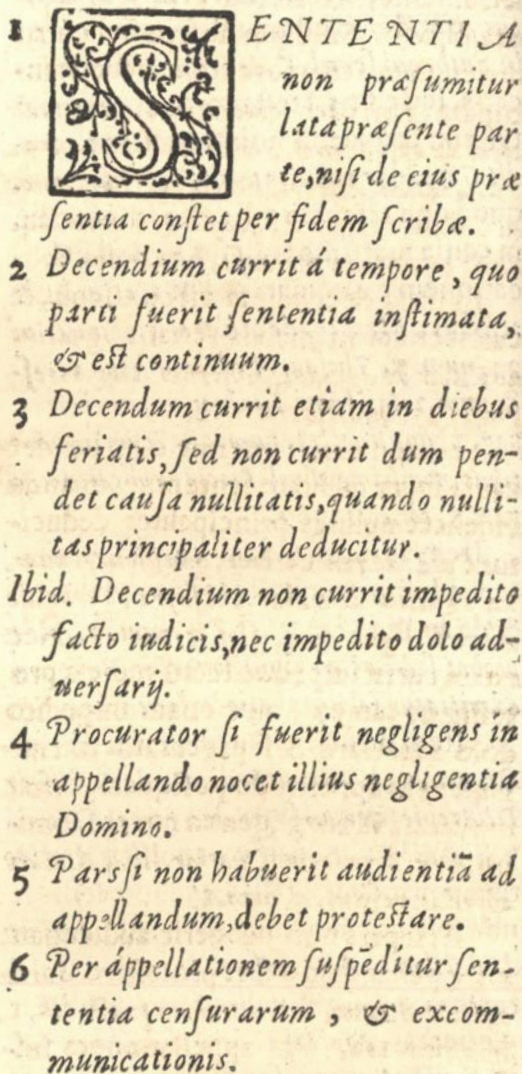 1 SENTENTIA
non præſumitur
lata præſente par
te, niſi de eius præ
ſentia conſtet per fidem ſcribæ.
2 Decendium currit á tempore, quo
parti fuerit ſententia inſtimata,
& eſt continuum.
3 Decendum currit etiam in diebus
feriatis, ſed non currit dum pen-
det cauſa nullitatis, quando nulli-
tas principaliter deducitur.
Ibid. Decendium non currit impedito
facto iudicis, nec impedito dolo ad-
uerſarij.
4 Procurator ſi fuerit negligens in
appellando nocet illius negligentia
Domino.
5 Pars ſi non habuerit audientiã ad
appellandum, debet proteſtare.
6 Per áppellationem ſuſpẽditur ſen-
tentia cenſurarum, & excom-
municationis.